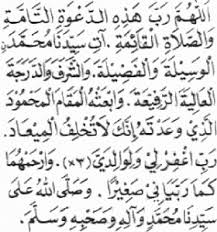 اَللّٰهُمَّ رَبَّ هٰذِهِ الدَّعْوَةِ التَّامَّةِ
وَالصَّلَاةِ الْقَائِمَةِ. آتِ سَيِّدَنَا مُحَمَّدَنِ
الْوَسِيلَةَ وَالْفَضِيلَةَ. وَالشَّرَفَ وَالدَّرَجَةَ
الْعَالِيَةَ الرَّفِيعَةَ. وَابْعَثْهُ الْمَقَامَ الْمَحْمُودَ
الَّذِي وَعَدْتَهُ إِنَّكَ لَا تُخْلِفُ الْمِيعَادَ.
رَبِّ اغْفِرْ لِي وَلِوَالِدَيَّ (×٣). وَارْحَمْهُمَا
كَمَا رَبَّيَانِي صَغِيرًا. وَصَلَّى اللهُ عَلَى
سَيِّدِنَا مُحَمَّدٍ وَآلِهِ وَصَحْبِهِ وَسَلَّمَ.